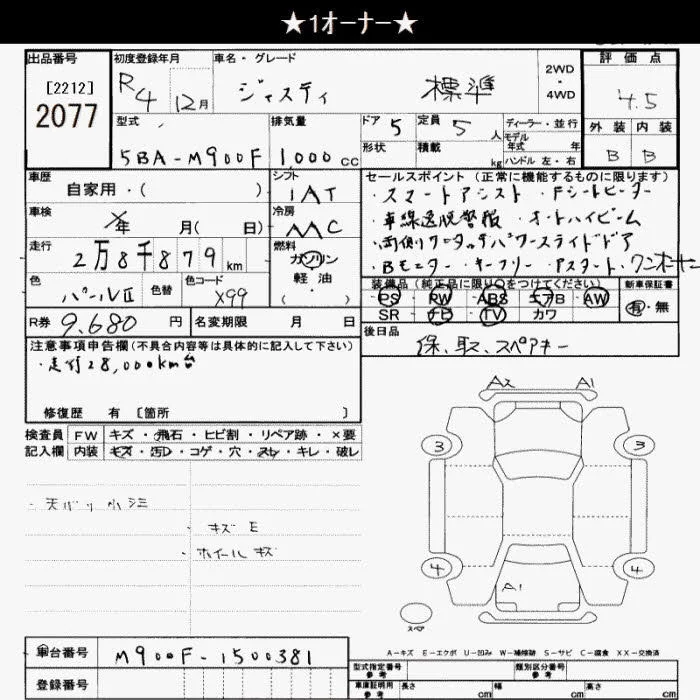 ★1オーナー★
出品番号
[2212]
2077
初度登録年月
R4 12月
車名・グレード
ジャスティ 標準
2WD
・
4WD
評価点
4.5
型式
5BA-M900F
排気量
1,000 CC
ドア 5
定員 5 人
形状
積載 kg
ディーラー・並行
モデル
年式 年
ハンドル 左・右
外装 内装
B B
車歴
自家用・( )
シフト
IAT
車検
年 月( 日)
冷房
AAC
走行
2万8千879km
燃料
ガソリン
軽油
( )
色
パールⅡ
色替
色コード
X99
R券 9,680 円
名変期限 月 日
セールスポイント(正常に機能するものに限ります)
・スマートアシスト・Fシートヒーター
・車線逸脱警報・オートハイビーム
・両側ワンタッチパワースライドドア
・Bモニター・キーフリー・Pスタート・ワンオーナー
装備品(純正品に限り○をつけてください)
PS PW ABS エアB AW
SR ナビ TV カワ
新車保証書
有・無
後日品
保、取、スペアキー
注意事項申告欄(不具合内容等は具体的に記入して下さい)
・走行28,000km台
修復歴 有 [箇所 ]
検査員 FW キズ・飛石・ヒビ割・リペア跡・×要
記入欄 内装 キズ・汚れ・コゲ・穴・スレ・キレ・破レ
・キズ E
・ホイールキズ
A2 A1
3 3
4 4
A1
スペア
A-キズ E-エクボ U-凹み W-補修跡 S-サビ C-腐食 XX-交換済
車台番号
M900F-1500381
登録番号
型式指定番号
参考
類別区分番号
参考
車庫証明用
参考
長さ cm 幅 cm 高さ cm